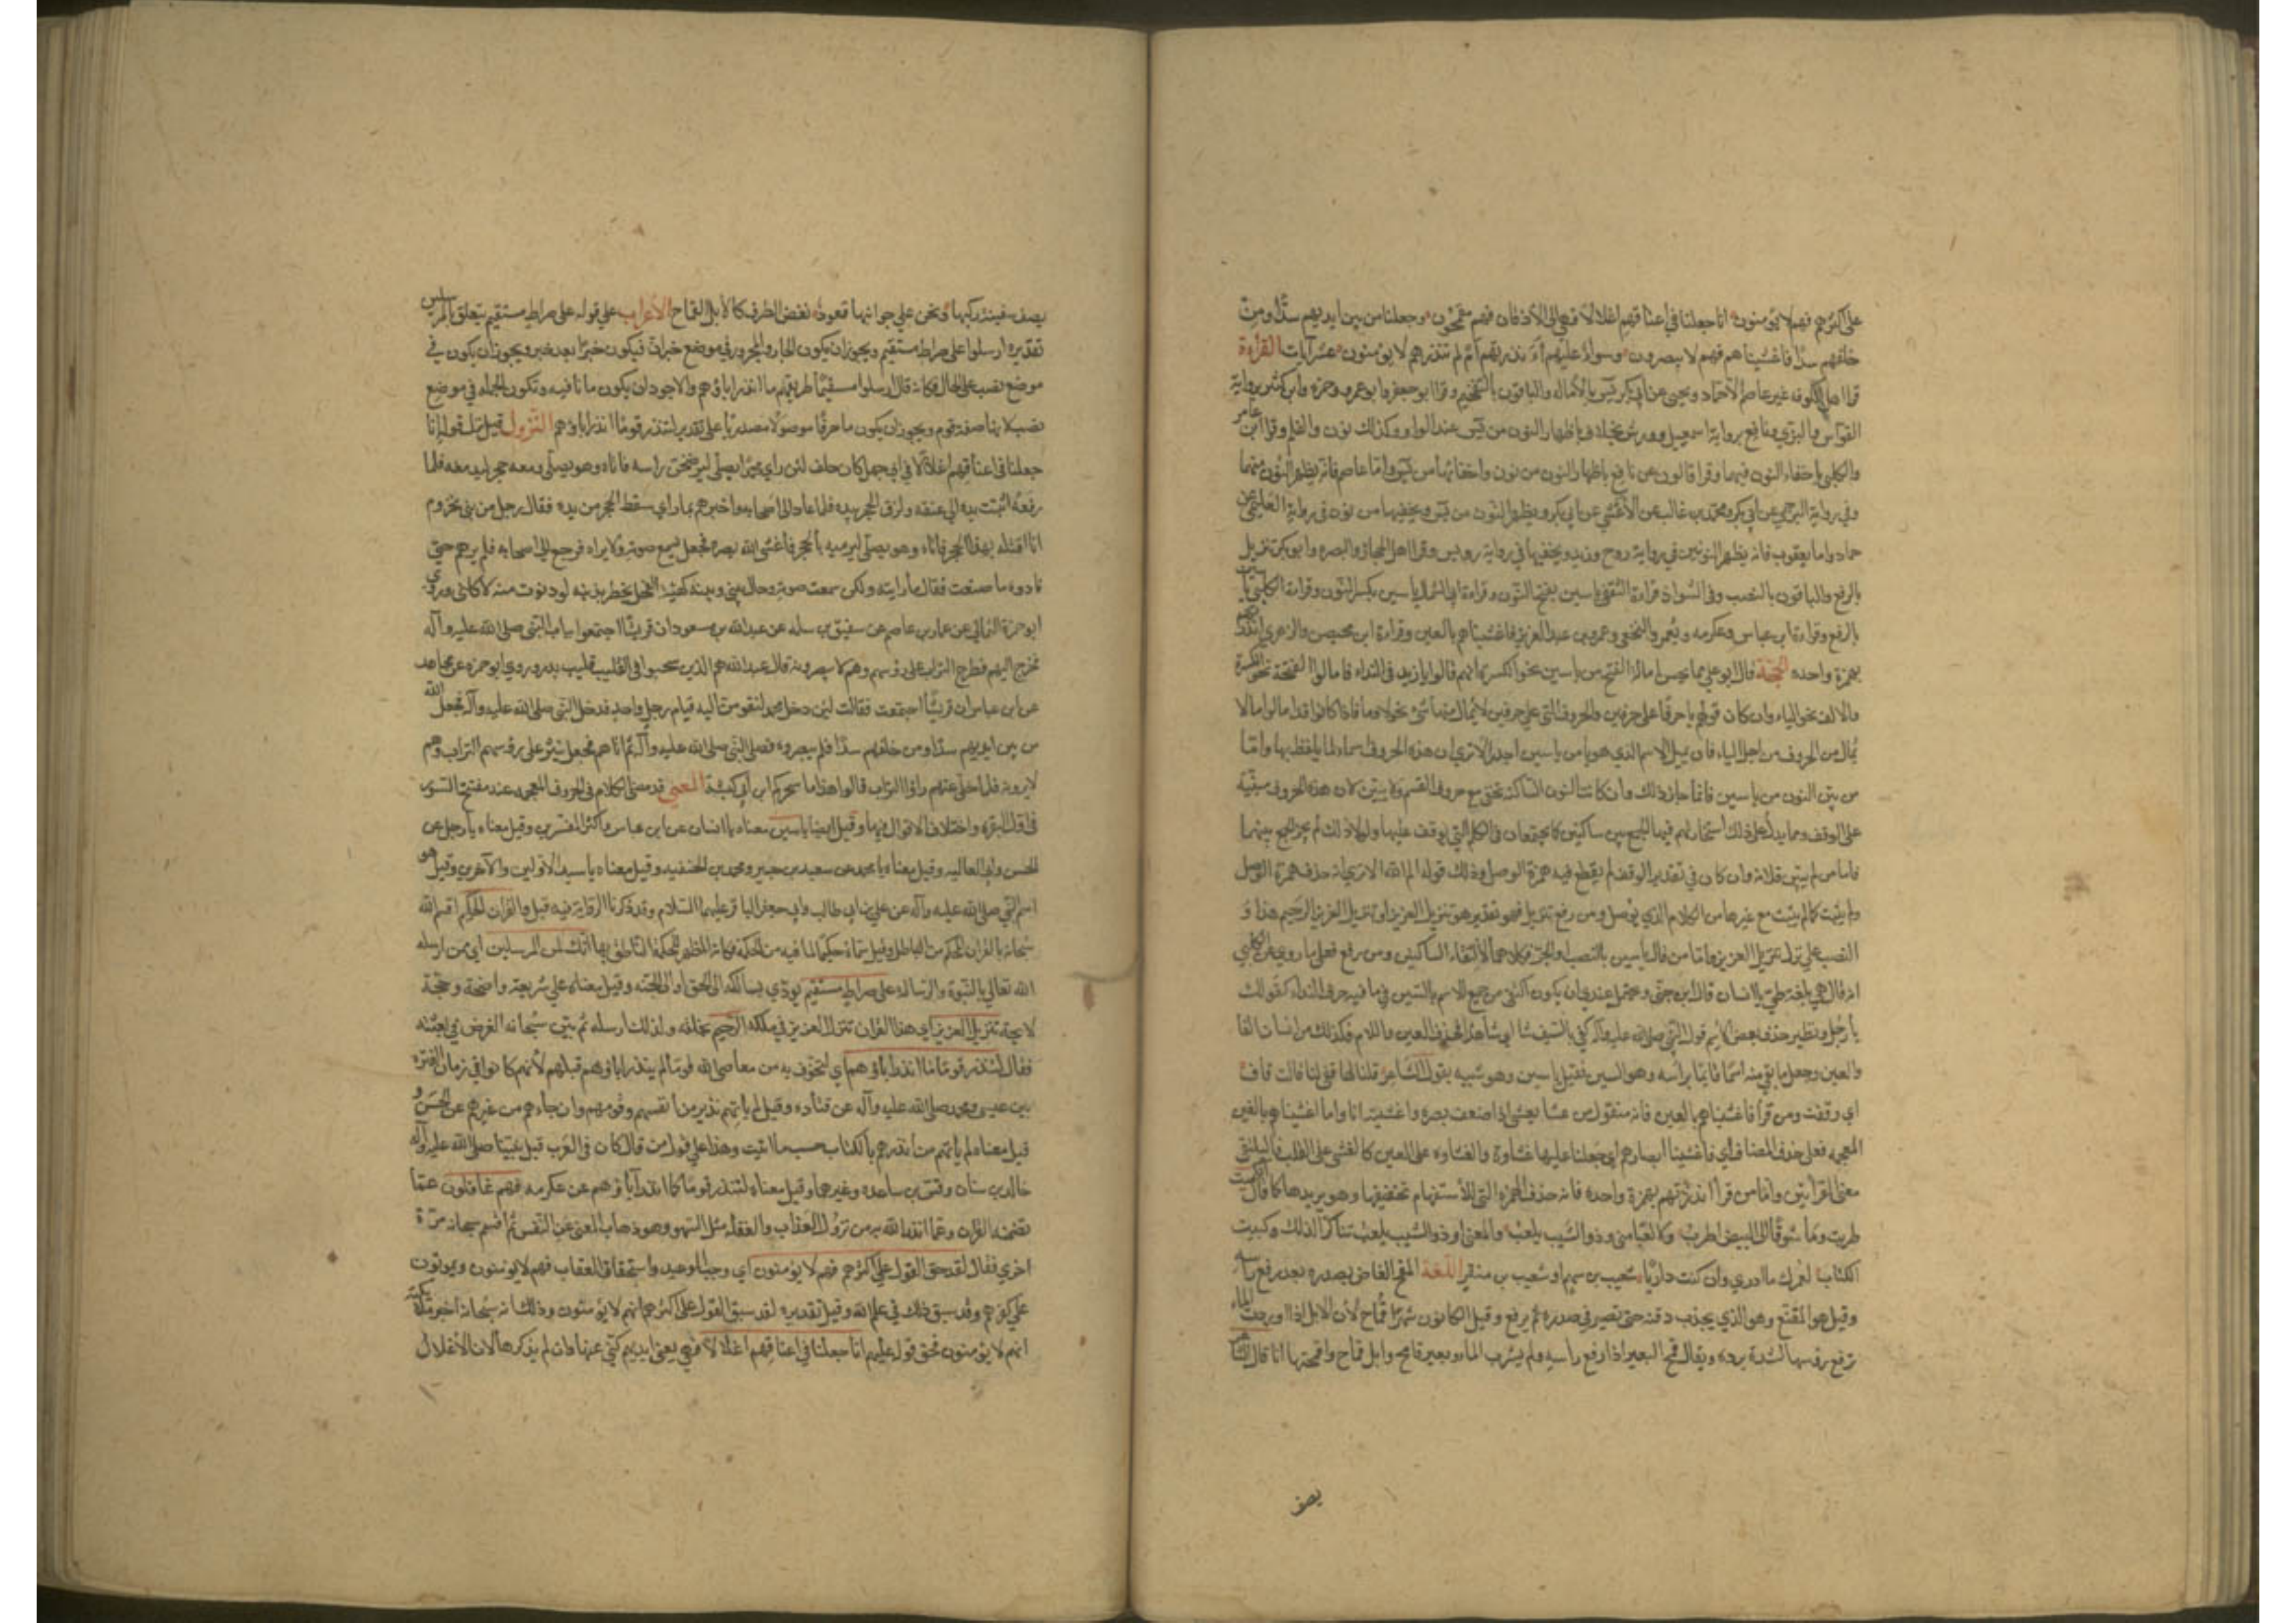 على اكثرهم فهم لا يؤمنون انا جعلنا في اعناقهم اغلالا فهي الى الأذقان فهم مقمحون وجعلنا من بين ايديهم سدّا ومن
خلفهم سدّا فاغشيناهم فهم لا يبصرون وسواء عليهم ءانذرتهم ام لم تنذرهم لا يؤمنون عشر آيات القراءة
قرا اهل الكوفه غير عاصم الا حماد ويحيى عن ابي بكر يس بالأماله والباقون بالتفخيم وقرا ابو جعفر وابو عمرو وحمزه وابن كثير برواية
القواس والبزي ونافع برواية اسمعيل وورش بخلاف باظهار النون من يس عند الواو وكذلك نون والقلم وقرا ابن عامر
والكسائي باخفاء النون فيهما وقرا قالون عن نافع باظهار النون من نون واخفائها من يس واما عاصم فانه يظهر النون منهما
وفي رواية البرجمي عن ابي بكر ومحمد بن غالب عن الأعشى عن ابي بكر ويظهر النون من يس ويخفيها من نون في رواية العليمي عن
حماد واما يعقوب فانه يظهر النونين في رواية روح وزيد ويخفيها في رواية رويس وقرا اهل الحجاز والبصره وابو بكر تنزيل
بالرفع والباقون بالنصب وفي الشواذ قراءة الثقفي ياسين بفتح النون وقراءة ابي السمال ياسين بكسر النون وقراءة الكلبي ياسين
بالرفع وقراءة ابن عباس وعكرمه و يعمر والنخعي وعمر بن عبد العزيز فاغشيناهم بالعين وقراءة ابن محيصن والزهري انذرتهم
بهمزة واحده الحجة قال ابو علي مما يحسن امالة الفتحه من ياسين نحو الكسر انهم قالوا يا زيد في النداء فامالوا الفتحة نحو الكسرة
والالف نحو الياء وان كان قولهم يا حرفا على حرفين والحروف التي على حرفين لا يمال منها شئ نحو لا وما فاذا كانوا قد امالوا ما لا
يمال من الحروف من اجل الياء فان يميل الاسم الذي هو يا من ياسين اجدر الا ترى ان هذه الحروف اسماء لما يلفظ بها واما
من بيّن النون من ياسين فانما جاز ذلك وان كانت النون الساكنه تخفى مع حروف الفم ولا يتبين لان هذه الحروف مبنيّه
على الوقف ومما يدل على ذلك استجازتهم فيها الجمع بين ساكنين كما يجتمعان في الكلم التي يوقف عليها ولولا ذلك لم يجز الجمع بينهما
فاما من لم يبين فلانه وان كان في تقدير الوقف لم يقطع فيه همزة الوصل وذلك قوله الم الله الا ترى انه حذف همزة الوصل
ولم يثبت كما لم يثبت مع غيرها من الكلام الذي يوصل ومن رفع تنزيل فهو تقدير هو تنزيل العزيز او تنزيل العزيز الرحيم هذا و
النصب على نزل تنزيل العزيز واما من قال ياسين بالنصب او الجر فكلاهما لالتقاء الساكنين ومن رفع فعلى ما روي عن الكلبي
انه قال هي بلغة طي يا انسان قال ابن جنّي ويحتمل عندي ان يكون اكتفى من جميع الاسم بالسين في يا فيه حرف النداء كقولك
يا رجل ونظير حذف بعض الاسم قول النبي صلى الله عليه وآله كفى بالسيف شا اي شاهدا فحذف العين واللام فكذلك من انسان الفا
والعين وجعل ما بقي منه اسما قائما برأسه وهو السين فقيل ياسين وهو شبيه بقول الشاعر قلنا لها قفي لنا قالت قاف
اي وقفت ومن قرا فاغشيناهم بالعين فانه منقول من عشا يعشى اذا ضعف بصره واعشيته انا واما اغشيناهم بالغين
المعجمه فعلى حذف المضاف اي فاغشينا ابصارهم اي جعلنا عليها غشاوة والغشاوه على العين كالغشى على القلب فيلتقي
معنى القراءتين واما من قرا انذرتهم بهمزة واحده فانه حذف الهمزه التي للاستفهام تخفيفها وهو يريدها كما قال الكميت
طربت وما شوقا الى البيض اطرب ولا لعبا مني وذو الشيب يلعب والمعنى او ذو الشيب يلعب تناكرا لذلك وكبيت
الكتاب لعمرك ما ادري وان كنت داريا شعيب بن سهم او شعيب بن منقر اللغة المقمح الغاض بصره بعد رفع راسه
وقيل هو المقنع وهو الذي يجذب ذقنه حتى تصير في صدره ثم يرفع وقيل الكانون شهرا قماح لان الابل اذا اوردت الماء
ترفع رؤسها لشدة برده ويقال قمح البعير اذا رفع راسه ولم يشرب الماء وبعير قامح وابل قماح واقمحتها انا قال الشاعر
يصف
يصف سفينة ركبها ونحن على جوانبها قعود نغض الطرف كالأبل القماح الأعراب على قوله على صراط مستقيم يتعلق بالمرسلين
تقديره ارسلوا على صراط مستقيم ويجوز ان يكون الجار والمجرور في موضع خبر ان فيكون خبرا بعد خبر ويجوز ان يكون في
موضع نصب على الحال فكانه قال ارسلوا مستقيما طريقهم ما انذر اباؤهم والاجود ان يكون ما نافيه وتكون الجمله في موضع
نصب لانها صفة قوم ويجوز ان يكون ما حرفا موصولا مصدريا على تقدير لتنذر قوما انذار اباؤهم النزول قيل نزل قوله انا
جعلنا في اعناقهم اغلالا في ابي جهل كان حلف لئن راي محمدا يصلّي ليرضخن راسه فاتاه وهو يصلّي ومعه حجر ليدمغه فلما
رفعه اثبتت يده الى عنقه ولزق الحجر بيده فلما عاد الى اصحابه واخبرهم بما راي سقط الحجر من يده فقال رجل من بني مخزوم
انا اقتله بهذا الحجر فاتاه وهو يصلّي ليرميه بالحجر فاغشى الله بصره فجعل يسمع صوته ولا يراه فرجع الى اصحابه فلم يرهم حتى
نادوه ما صنعت فقال ما رايته ولكن سمعت صوته وحال بيني وبينه كهيئة الفحل يخطر بذنبه لو دنوت منه لاكلني وروى
ابو حمزة الثمالي عن عمار بن عاصم عن سفيق بن سلمه عن عبد الله بن مسعود ان قريشا اجتمعوا بباب النبي صلى الله عليه وآله
فخرج اليهم فطرح التراب على رؤسهم وهم لا يبصرونه قال عبد الله هم الذين سحبوا في القليب قليب بدر وروى ابو حمزه عن مجاهد
عن ابن عباس ان قريشا اجتمعت فقالت لئن دخل محمد لنقومن اليه قيام رجل واحد فدخل النبي صلى الله عليه وآله فجعل الله
من بين ايديهم سدّا ومن خلفهم سدّا فلم يبصروه فصلى النبي صلى الله عليه وآله ثم اتاهم فجعل ينثر على رؤسهم التراب وهم
لا يرونه فلما خلّى عنهم راوا التراب قالوا هذا ما سحركم ابن ابي كبشة المعنى قد مضى الكلام في الحروف المعجمه عند مفتتح السور
في اوّل البقره واختلاف الاقوال فيها وقيل ايضا ياسين معناه يا انسان عن ابن عباس واكثر المفسرين وقيل معناه يا رجل عن
الحسن وابي العاليه وقيل معناه يا محمد عن سعيد بن جبير ومحمد بن الحنفيه وقيل معناه يا سيد الاولين والآخرين وقيل هو
اسم النبي صلى الله عليه وآله عن علي بن ابي طالب وابي جعفر الباقر عليهما السلام وقد ذكرنا الرواية فيه قبل والقران الحكيم اقسم الله
سبحانه بالقران المحكم من الباطل وقيل سماه حكيما لما فيه من الحكمة فكانه المظهر للحكمة الناطق بها انك لمن المرسلين اي ممن ارسله
الله تعالى بالنبوة والرساله على صراط مستقيم يؤدي بسالكه الى الحق او الى الجنه وقيل معناه على شريعة واضحة وحجة
لايحة تنزيل العزيز اي هذا القران تنزيل العزيز في ملكه الرحيم بخلقه ولذلك ارسله ثم بيّن سبحانه الغرض في بعثته
فقال لتنذر قوما ما انذر اباؤهم اي لتخوّف به من معاصي الله قوما لم ينذر اباؤهم قبلهم لأنهم كانوا في زمان الفتره
بين عيسى ومحمد صلى الله عليه وآله عن قتاده وقيل لم ياتهم نذير من انفسهم وقومهم وان جاءهم من غيرهم عن الحسن و
قيل معناه لم يأتهم من انذرهم بالكتاب حسب ما اتيت وهذا على قول من قال كان في العرب قبل نبيّنا صلى الله عليه وآله
خالد بن سنان وقس بن ساعده وغيرهما وقيل معناه لتنذر قوما كما انذر آباؤهم عن عكرمه فهم غافلون عمّا
تضمنه القران وعما انذر الله به من نزول العذاب والغفله مثل السهو وهو ذهاب المعنى عن النفس ثم اقسم سبحانه مرّة
اخرى فقال لقد حق القول على اكثرهم فهم لا يؤمنون اي وجب الوعيد واستحقاق العقاب فهم لا يؤمنون ويموتون
على كفرهم وقد سبق ذلك في علم الله وقيل تقديره لقد سبق القول على اكثرهم انهم لا يؤمنون وذلك انه سبحانه اخبر ملائكته
انهم لا يؤمنون فحق قوله عليهم انا جعلنا في اعناقهم اغلالا فهي يعني ايديهم كنّي عنها وان لم يذكرها لان الأغلال